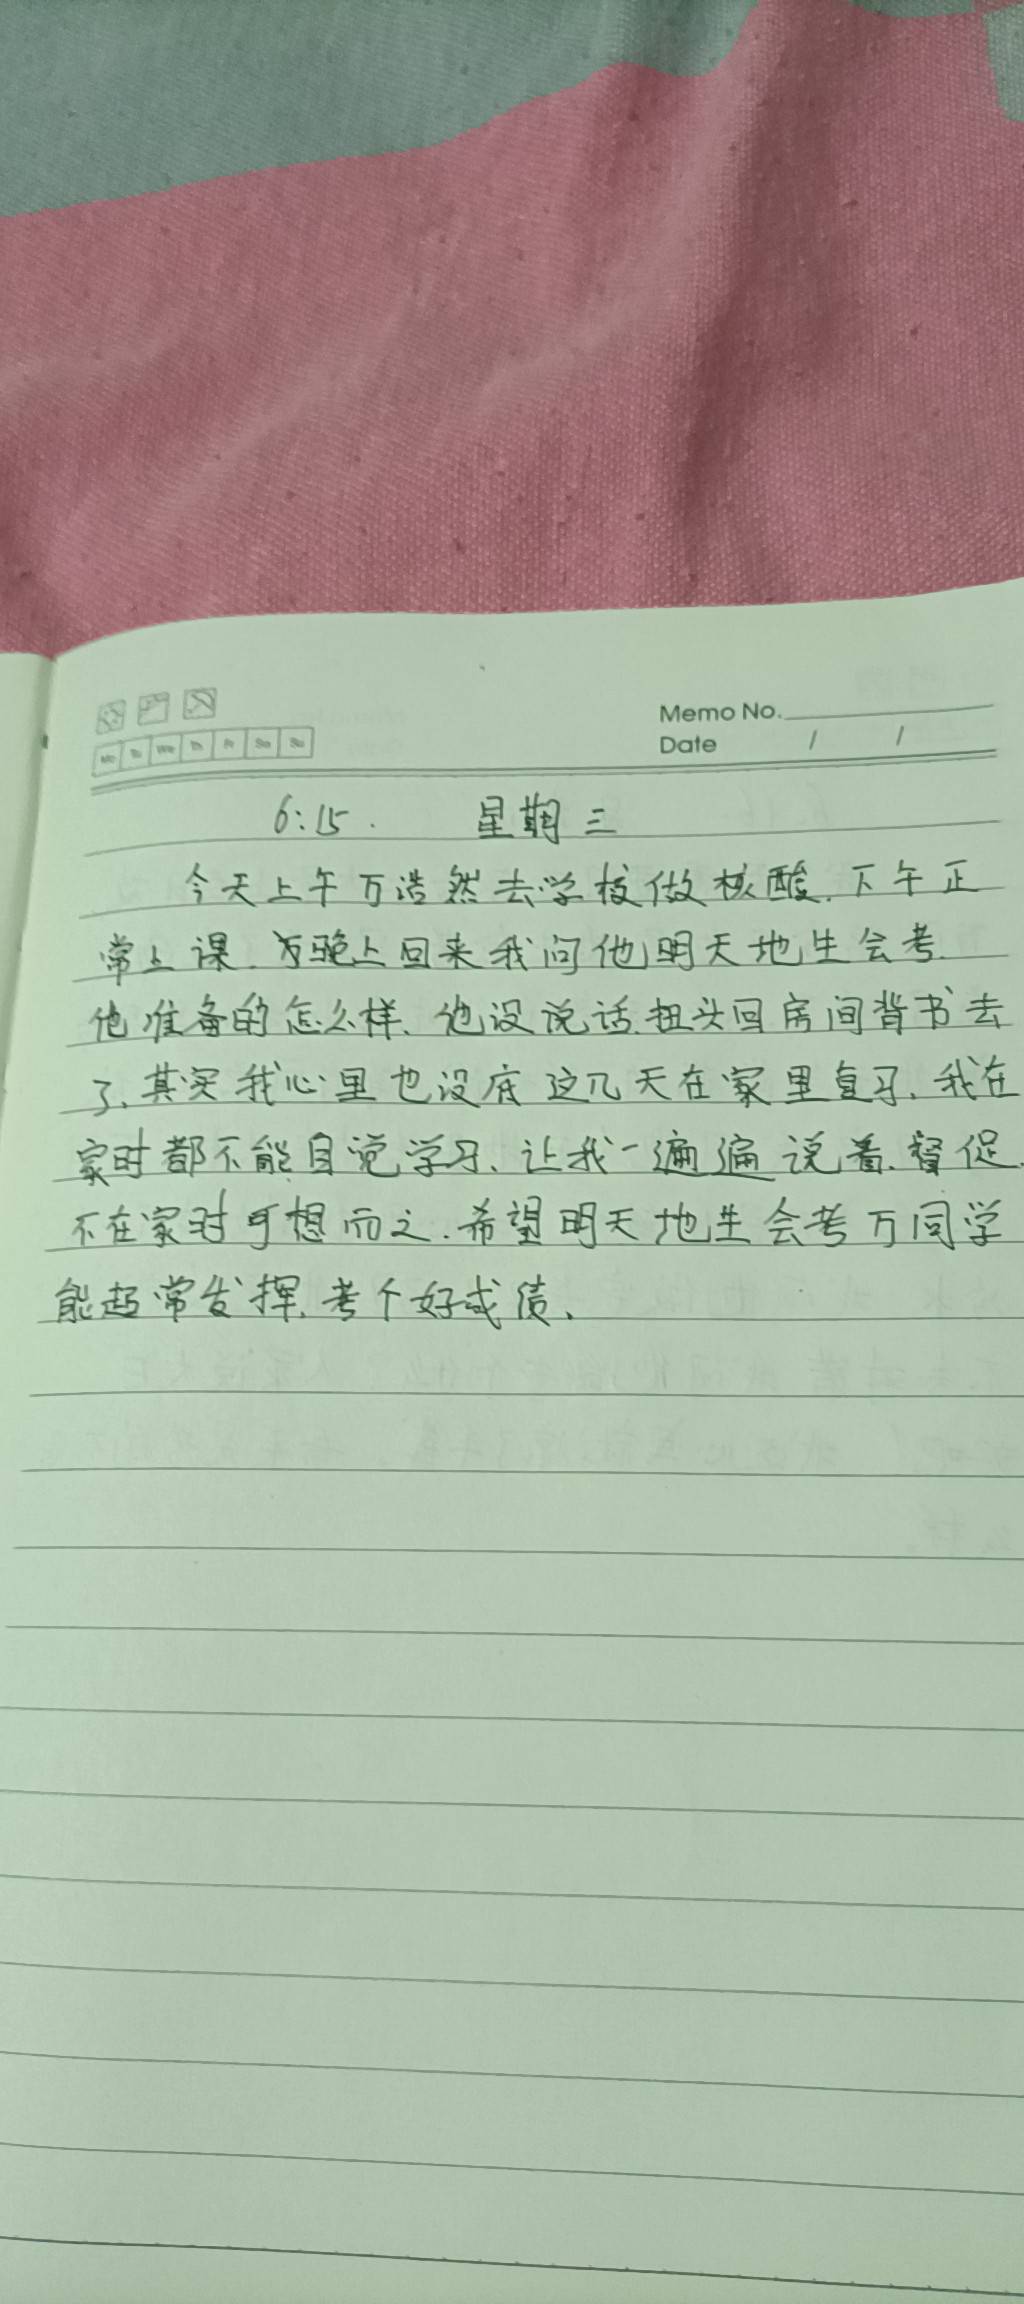 Memo No.
Mo Tu We Th Fr Sa Su
Date / /
6:15. 星期三
今天上午万浩然去学校做核酸.下午正
常上课.万晚上回来我问他明天地生会考.
他准备的怎么样、他没说话.扭头回房间背书去
了、其实我心里也没底 这几天在家里复习、我在
家时都不能自觉学习、让我一遍遍说着.督促.
不在家时可想而之.希望明天地生会考万同学
能超常发挥.考个好成绩、